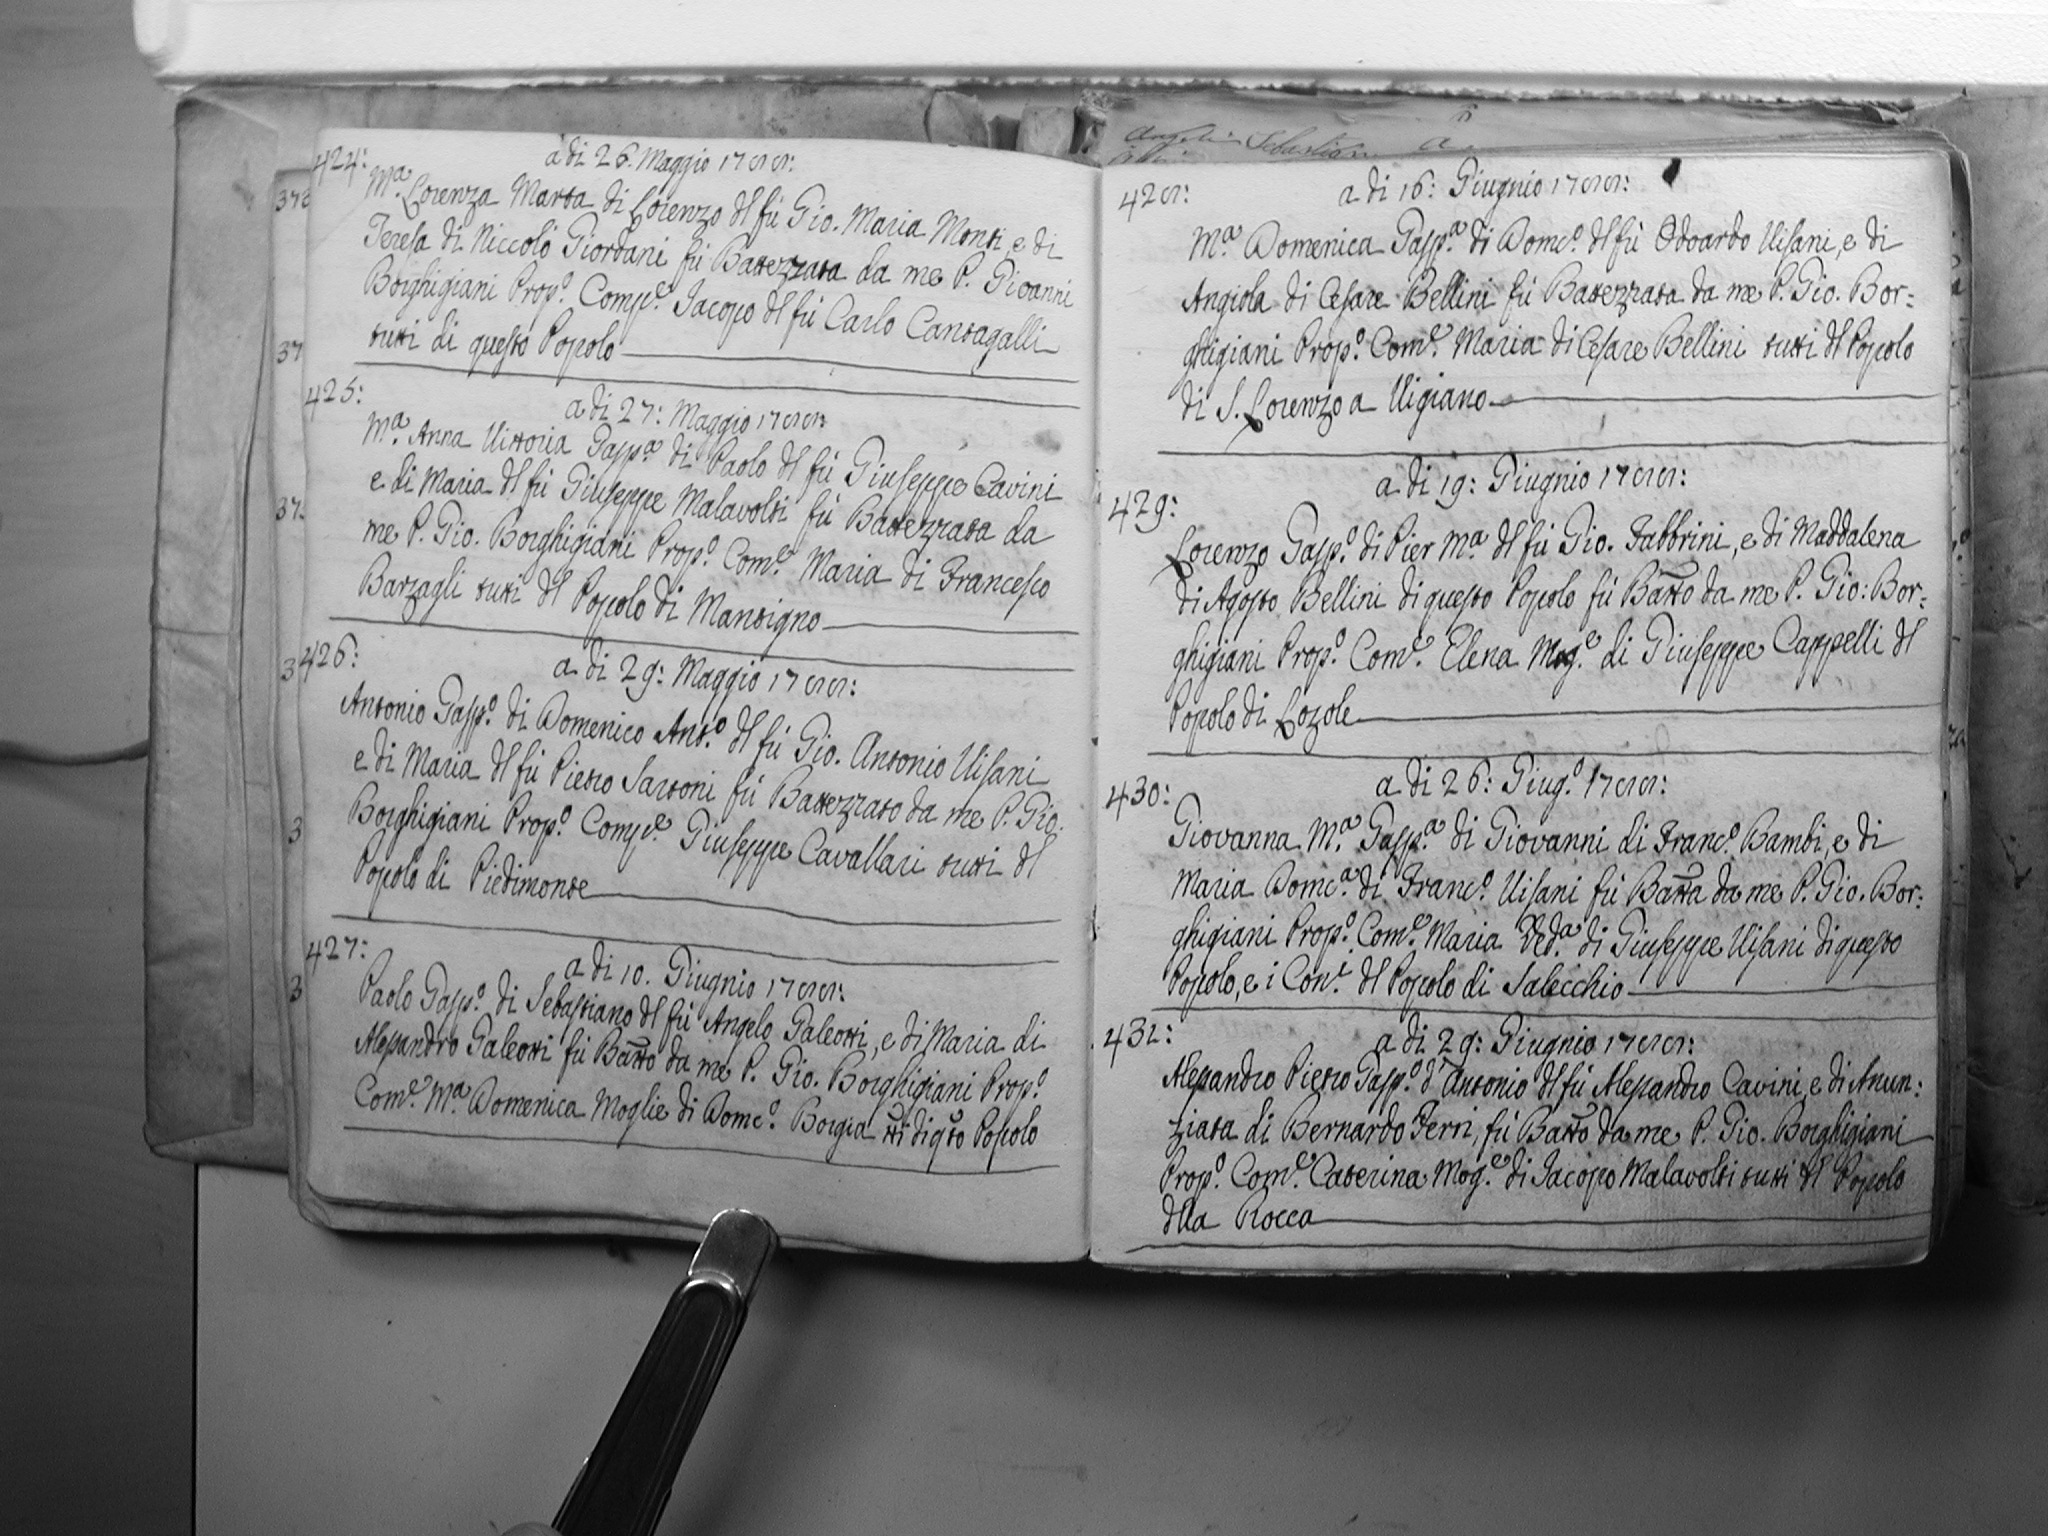 424: a di 26. Maggio 1788:
M.ª Lorenza Marta di Lorenzo dl fù Gio. Maria Monti, e di
Teresa di Niccolò Giordani fù Battezzata da me P. Giovanni
Borghigiani Prop.º Comp.e Jacopo dl fù Carlo Cantagalli
tutti di questo Popolo
425: a di 27: Maggio 1788:
M.ª Anna Vittoria Gasp.ª di Paolo dl fù Giuseppe Cavini
e di Maria dl fù Giuseppe Malavolti fù Battezzata da
me P. Gio. Borghigiani Prop.º Com.e Maria di Francesco
Barzagli tutti dl Popolo di Mantigno
426: a di 29: Maggio 1788:
Antonio Gasp.º di Domenico Ant.º dl fù Gio. Antonio Visani
e di Maria dl fù Pietro Sartoni fù Battezzato da me P. Gio.
Borghigiani Prop.º Comp.e Giuseppe Cavallari tutti dl
Popolo di Piedimonte
427: a di 10. Giugnio 1788:
Paolo Gasp.º di Sebastiano dl fù Angelo Galeotti, e di Maria di
Alessandro Galeotti fù Batto da me P. Gio. Borghigiani Prop.º
Com.e M.ª Domenica Moglie di Domc.º Borgia tti di qsto Popolo
428: a di 16: Giugnio 1788:
M.ª Domenica Gasp.ª di Domc.º dl fù Odoardo Visani, e di
Angiola di Cesare Bellini fù Battezzata da me P. Gio. Bor=
ghigiani Prop.º Com.e Maria di Cesare Bellini tutti dl Popolo
di S. Lorenzo a Vigiano
429: a di 19: Giugnio 1788:
Lorenzo Gasp.º di Pier M.ª dl fù Gio. Fabbrini, e di Maddalena
di Agosto Bellini di questo Popolo fù Batto da me P. Gio: Bor=
ghigiani Prop.º Com.e Elena Mog.e di Giuseppe Cappelli dl
Popolo di Lozole
430: a di 26: Giug.º 1788:
Giovanna M.ª Gasp.ª di Giovanni di Franc.º Bambi, e di
Maria Domc.ª di Franc.º Visani fù Batta da me P. Gio. Bor=
ghigiani Prop.º Com.e Maria Ved.ª di Giuseppe Visani di questo
Popolo, e i Con.i dl Popolo di Salecchio
431: a di 29: Giugnio 1788:
Alessandro Pietro Gasp.º d'Antonio dl fù Alessandro Cavini, e di Anun=
ziata di Bernardo Ferri, fù Batto da me P. Gio. Borghigiani
Prop.º Com.e Caterina Mog.e di Jacopo Malavolti tutti dl Popolo
dlla Rocca